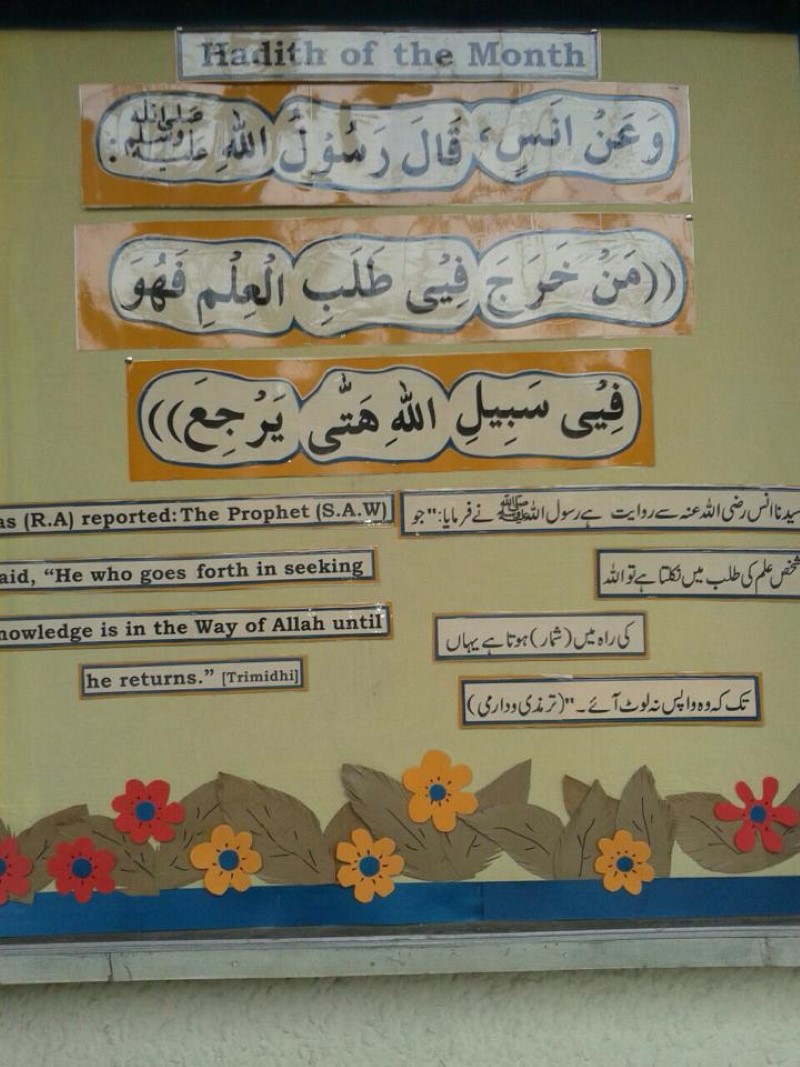 Hadith of the Month
وَعَنْ انَسٍ، قَالَ رَسُوْلُ اللّٰهِ صلى الله عليه وسلم:
((مَنْ خَرَجَ فِيْى طَلَبِ الْعِلْمِ فَهُوَ
فِيْى سَبِيلِ اللّٰهِ هَتّٰى يَرْجِعَ))
as (R.A) reported:The Prophet (S.A.W)
aid, “He who goes forth in seeking
nowledge is in the Way of Allah until
he returns.” [Trimidhi]
سیدنا انس رضی اللہ عنہ سے روایت ہے رسول اللہ ﷺ نے فرمایا:"جو
شخص علم کی طلب میں نکلتا ہے تو اللہ
کی راہ میں (شمار) ہوتا ہے یہاں
تک کہ وہ واپس نہ لوٹ آئے۔"(ترمذی و دارمی)